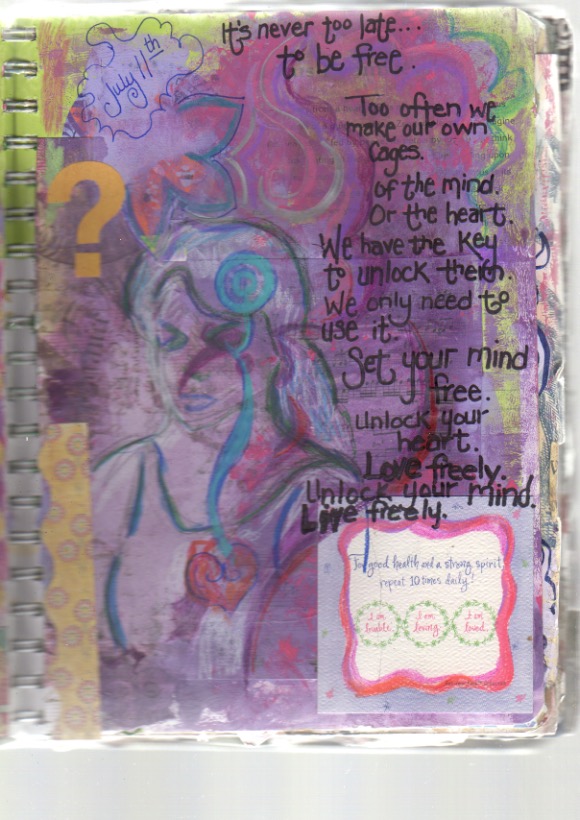 July 11th
It's never too late...
to be free.
?
Too often we
make our own
cages.
of the mind.
Or the heart.
We have the key
to unlock them.
We only need to
use it.
Set your mind
free.
Unlock your
heart.
Love freely.
Unlock your mind.
Live freely.
For good health and a strong spirit
repeat 10 times daily!
I am
lovable.
I am
loving.
I am
loved.